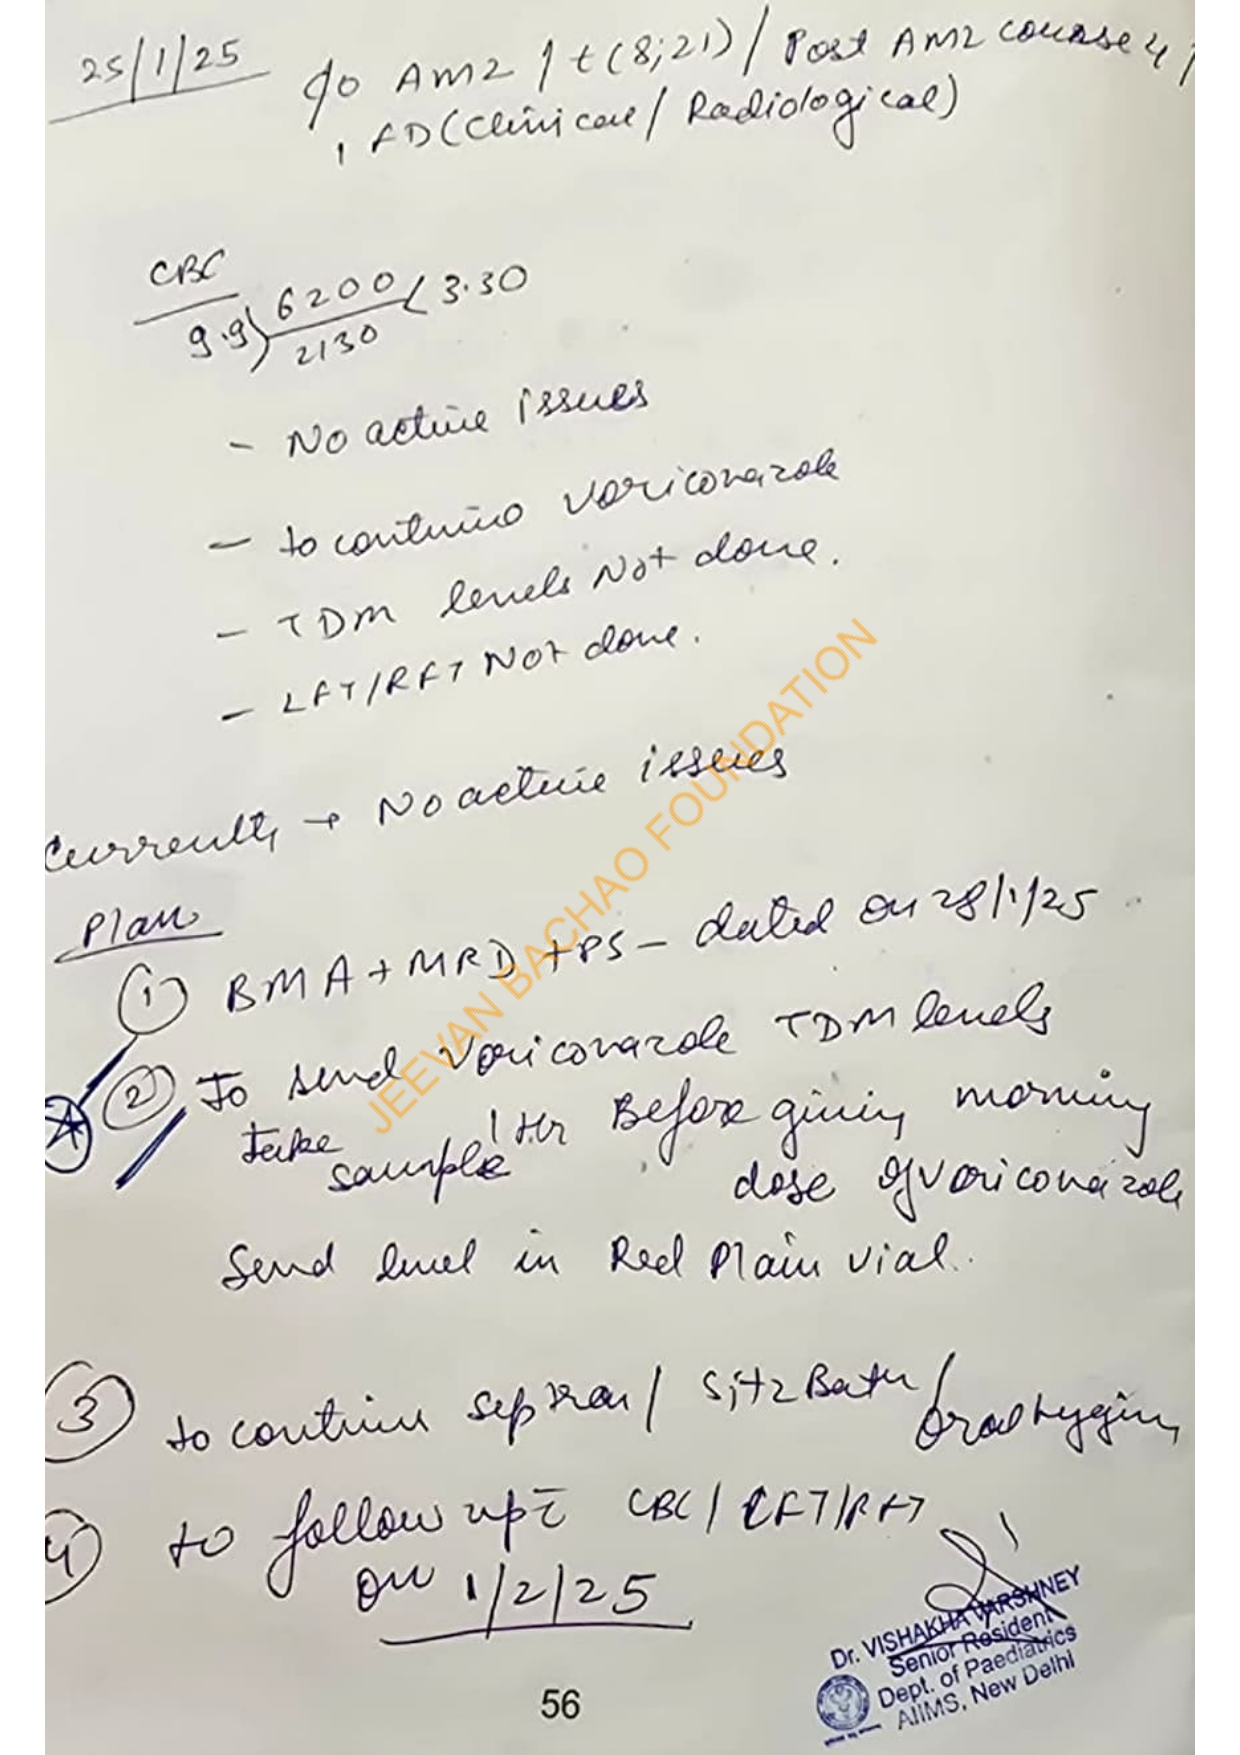 25/1/25
c/o AML / t(8;21) / Post AML course 4 /
, FD (Clinical / Radiological)
CBC
9.9 ) 6200 / 2130 ( 3.30
- No active issues
- to continue voriconazole
- TDM levels Not done.
- LFT/RFT Not done.
Currently → No active issues
Plan
① BMA + MRD + PS - dated on 28/1/25
② To send Voriconazole TDM levels
take sample 1 Hr Before giving morning
dose of voriconazole
Send level in Red Plain vial.
③ to continue septran / Sitz Bath / oral hygiene
④ to follow up c̄ CBC / LFT/RFT
on 1/2/25
JEEVAN BACHAO FOUNDATION
Dr. VISHAKHA VARSHNEY
Senior Resident
Dept. of Paediatrics
AIIMS, New Delhi
56